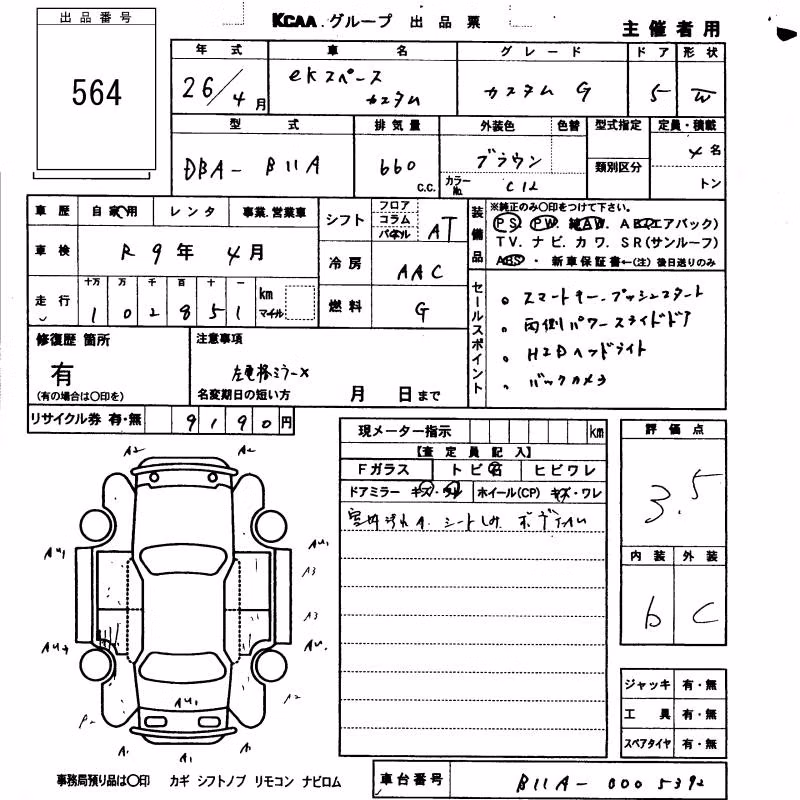 出品番号
564
KCAA.グループ 出品票
主催者用
年式 車名 グレード ドア 形状
26/4月 eKスペース カスタム カスタム G 5 W
型式 排気量 外装色 色替 型式指定 定員・積載
DBA- B11A 660 C.C. ブラウン 類別区分 4名
カラーNo. C12 トン
車歴 自家用 レンタ 事業.営業車
シフト フロア コラム パネル AT
装備品 ※純正のみ○印をつけて下さい。
PS. PW. 純AW. AB(エアバック)
TV. ナビ. カワ. SR(サンルーフ)
ABS・新車保証書←(注)後日送りのみ
車検 R 9年 4月
冷房 AAC
走行 十万 万 千 百 十 一
1 0 2 8 5 1 km マイル
燃料 G
セールスポイント
。スマートキー.プッシュスタート
。両側パワースライドドア
。HIDヘッドライト
。バックカメラ
修復歴 箇所
有
(有の場合は○印を)
注意事項
左電格ミラーX
名変期日の短い方 月 日まで
リサイクル券 有・無 9190円
現メーター指示 km
【査定員記入】
Fガラス トビ石 ヒビワレ
ドアミラー キズ・ワレ ホイール(CP) キズ・ワレ
室内汚れA. シートしみ
評価点
3.5
内装 外装
b C
A2 A2
AU1 AU1
A3
A3
AU1
A2
AU1
P2
A1 A1 A1
ジャッキ 有・無
工具 有・無
スペアタイヤ 有・無
事務局預り品は○印 カギ シフトノブ リモコン ナビロム
車台番号 B11A-0005392